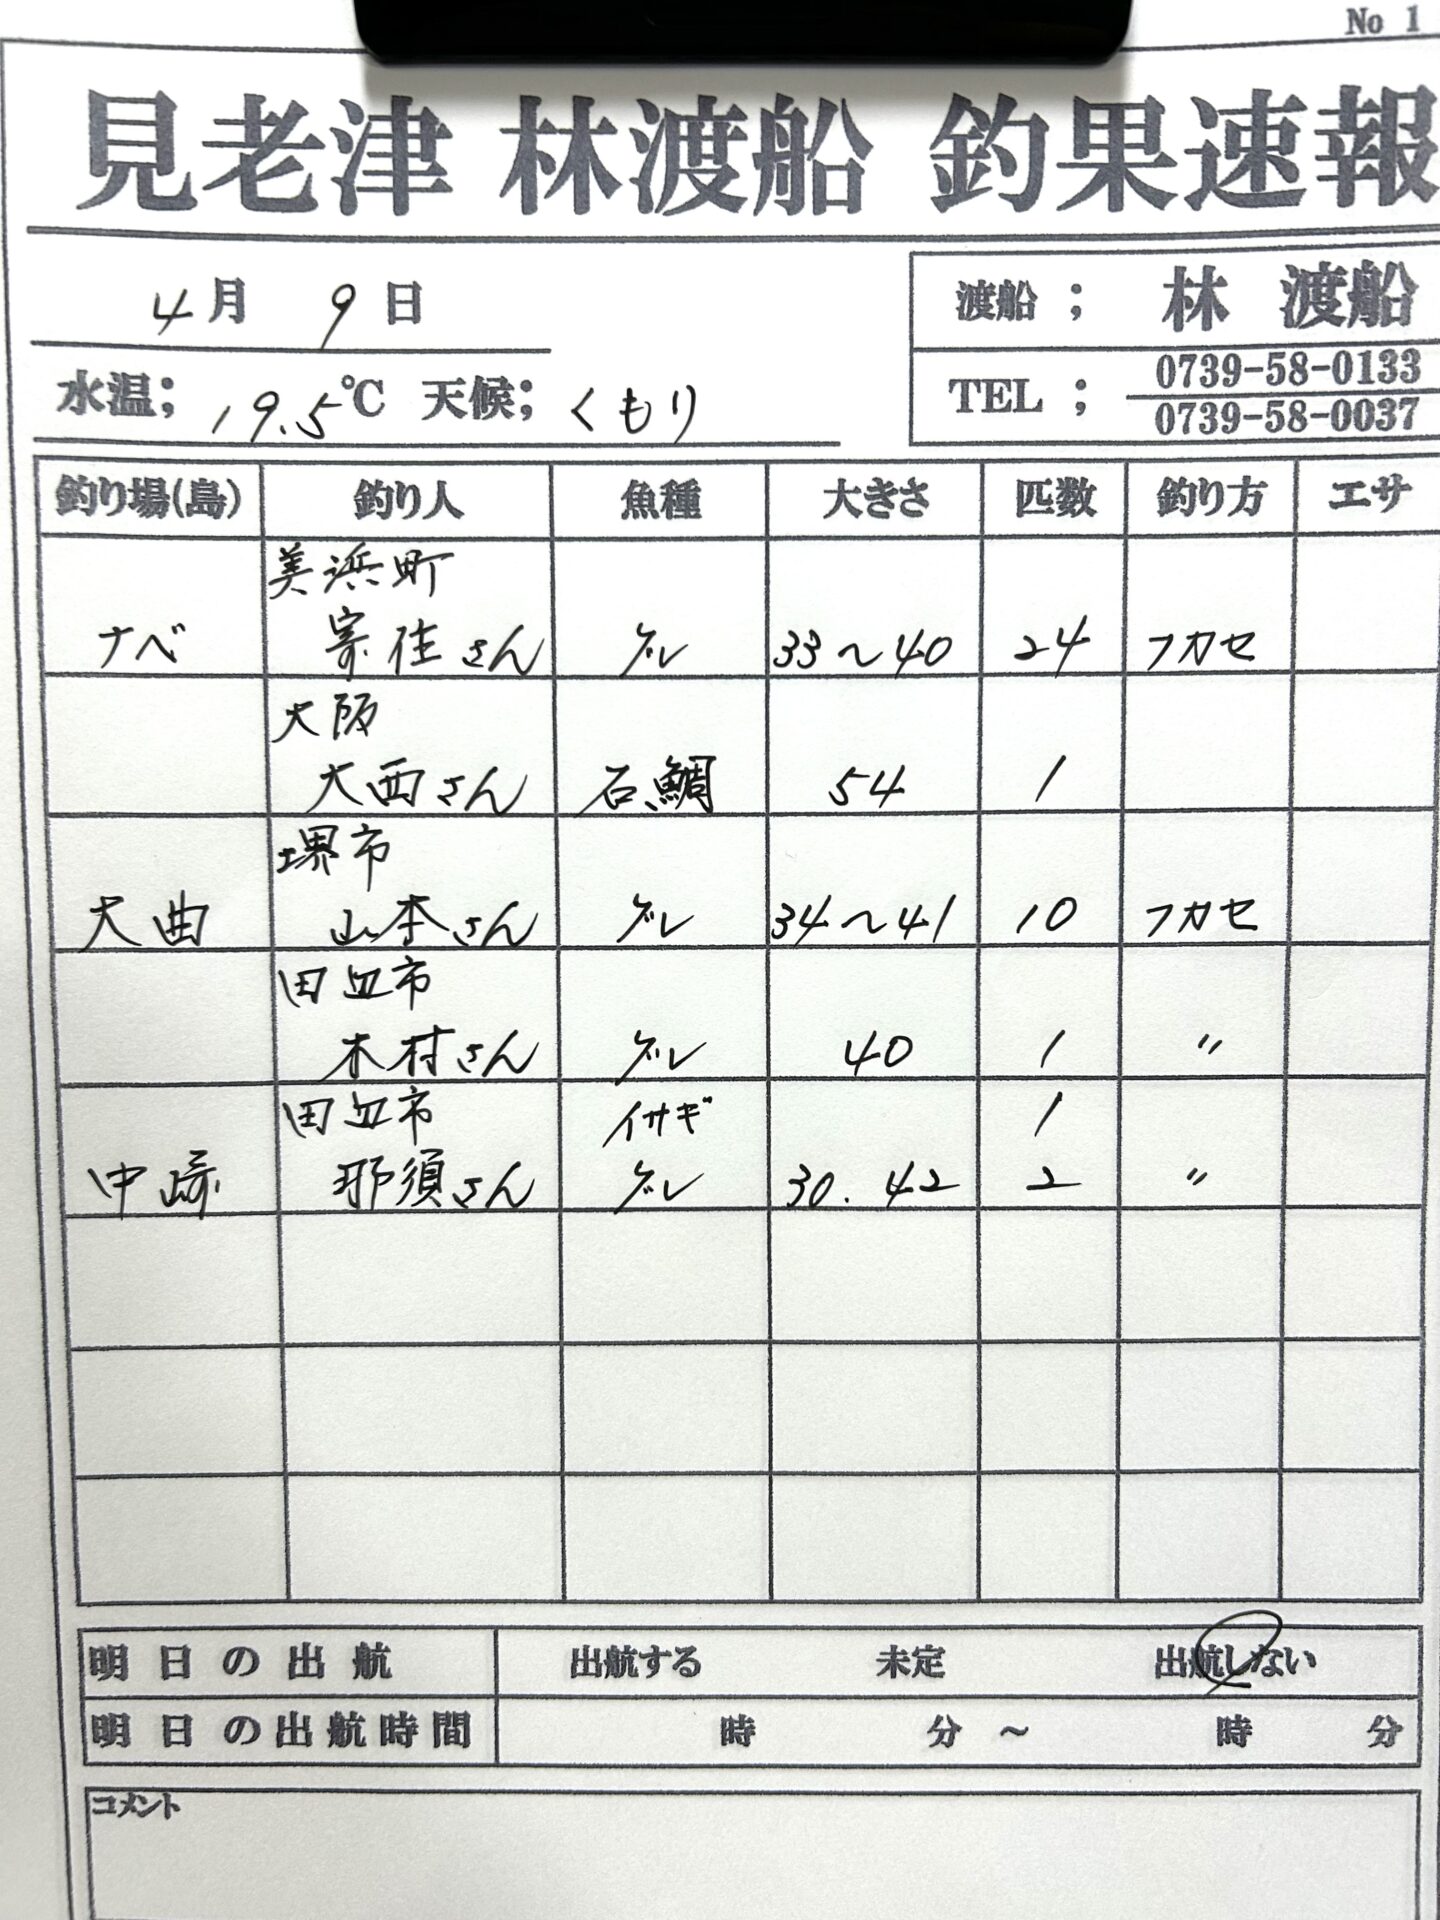 No 1
見老津 林渡船 釣果速報
4月 9日
渡船; 林 渡船
水温; 19.5℃ 天候; くもり
TEL; 0739-58-0133
0739-58-0037
釣り場(島) 釣り人 魚種 大きさ 匹数 釣り方 エサ
美浜町
ナベ 寄住さん グレ 33〜40 24 フカセ
大阪
大西さん 石鯛 54 1
堺市
大曲 山本さん グレ 34〜41 10 フカセ
田辺市
木村さん グレ 40 1 〃
田辺市 イサギ 1
中崎 那須さん グレ 30.42 2 〃
明日の出航 出航する 未定 出航しない
明日の出航時間 時 分〜 時 分
コメント